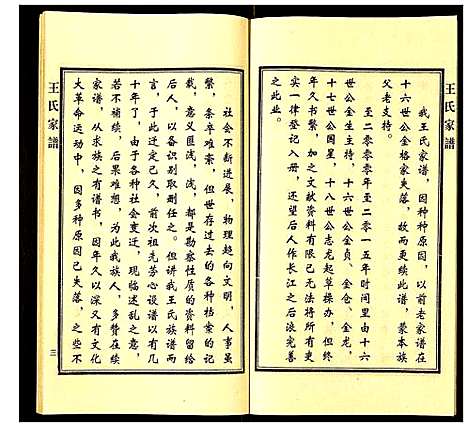 王氏家譜
我王氏家譜，因种种原因，以前老家谱在
十六世公金格家失落，故而更续此谱，蒙本族
父老支持。
至二零零零年至二零一五年时间里由十六
世公金生主持，十六世公金贞、金仓、金龙，
十七世公国星，十八世公志龙起草操办，但终
年久书繁，加之文献资料有限已无法将所有
实一律登记入册，还望后人作长江之后浪完善
之此业。
王氏家譜
社会不断进展，物理趋向文明，人事虽
繁，条卒难索，但世存过去的各种档案的记
载，意义匪浅，浅，都是勘察性质的资料留给
后人，以备识别取删任之。但讲我王氏族谱而
言，于此迁定已久，前次祖先苦心设谱以有几
十年了，由于各种社会变迁，现临述乱之念，
若不补续，后果难想，为此我族人，多数倡议
家谱，从求族之有谱书，因年久以深又有文化
大革命运动中，因多种原因已失落，之些不
三